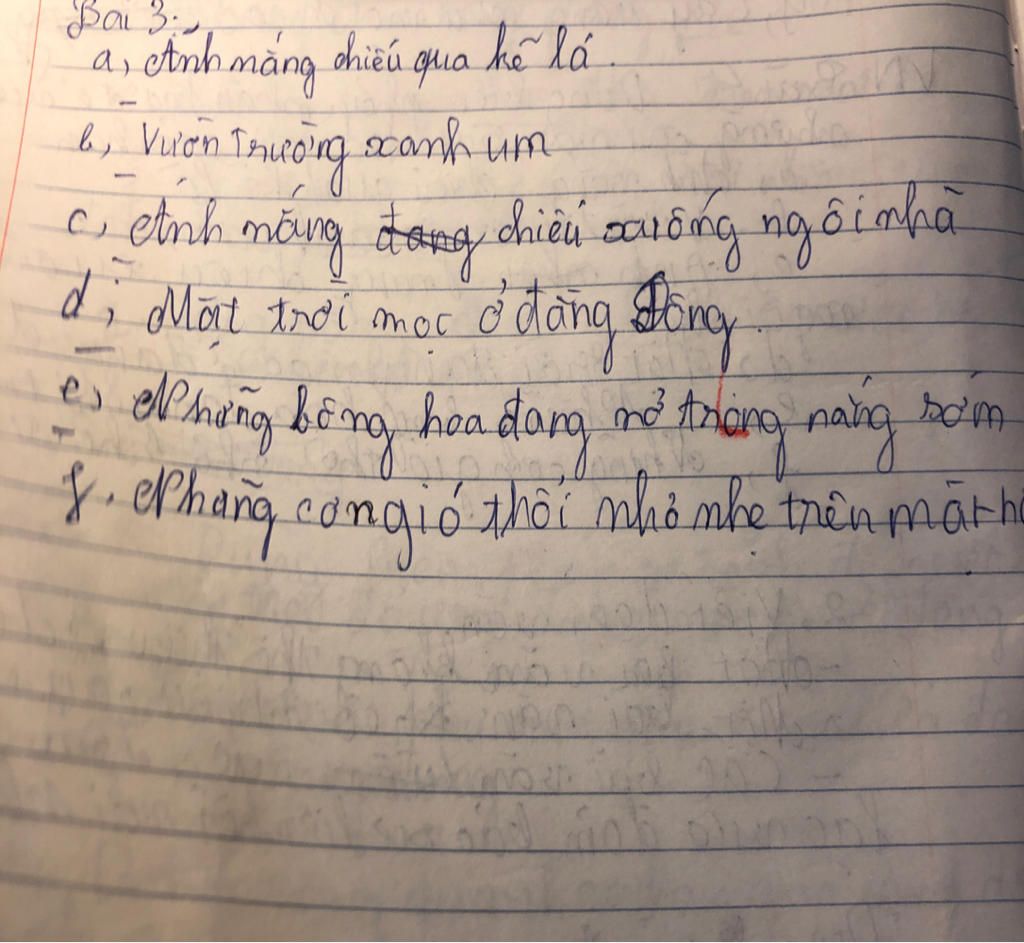 Bài 3:
a, Ánh nắng chiếu qua kẽ lá.
b, Vườn Trường xanh um
c, Ánh nắng đang chiếu xuống ngôi nhà
d, Mặt trời mọc ở đằng Đông.
e, Những bông hoa đang nở trong nắng sớm
f. Những cơn gió thổi nhỏ nhẹ trên mặt